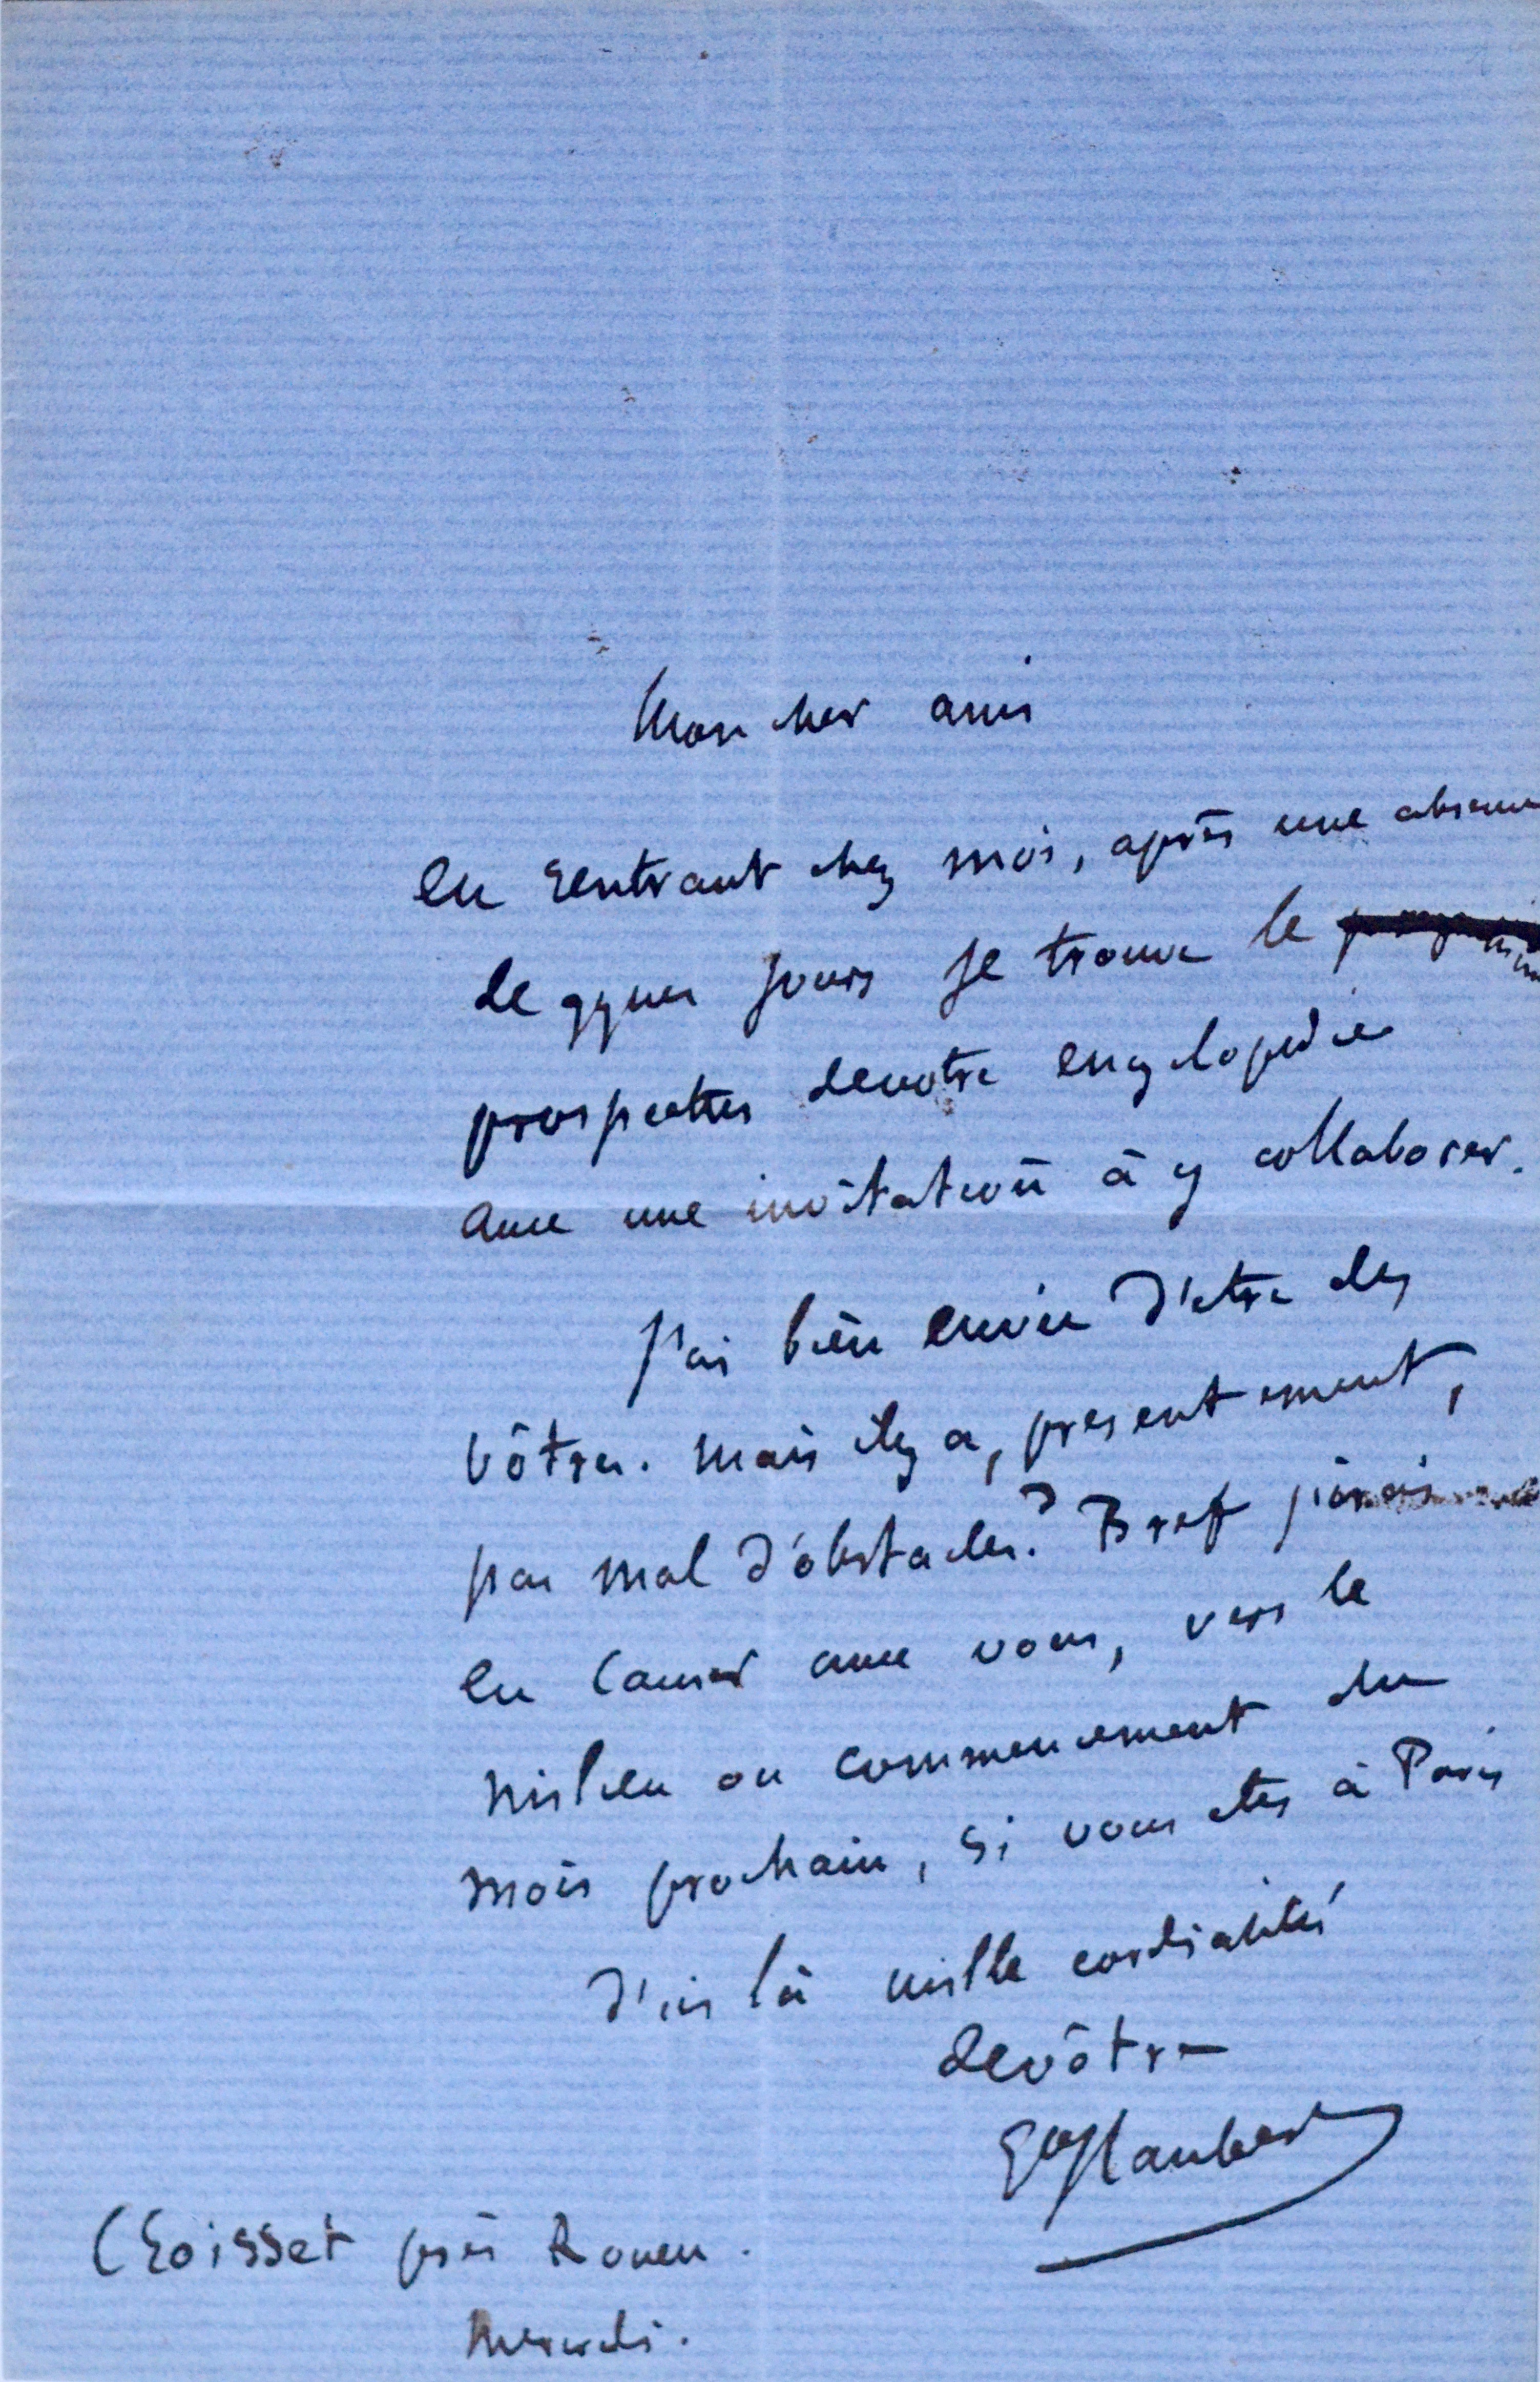 Mon cher ami
en rentrant chez moi, après une absence
de qques jours je trouve le
prospectus de votre encyclopedie
avec une invitation à y collaborer.
J'ai bien envie d'etre des
vôtres. mais il y a, presentement,
pas mal d'obstacles? Bref j'irai
en causer avec vous, vers le
milieu ou commencement du
mois prochain, si vous etes à Paris
d'ici là mille cordialités
de vôtre
Gve Flaubert
Croisset près Rouen.
Mercredi.